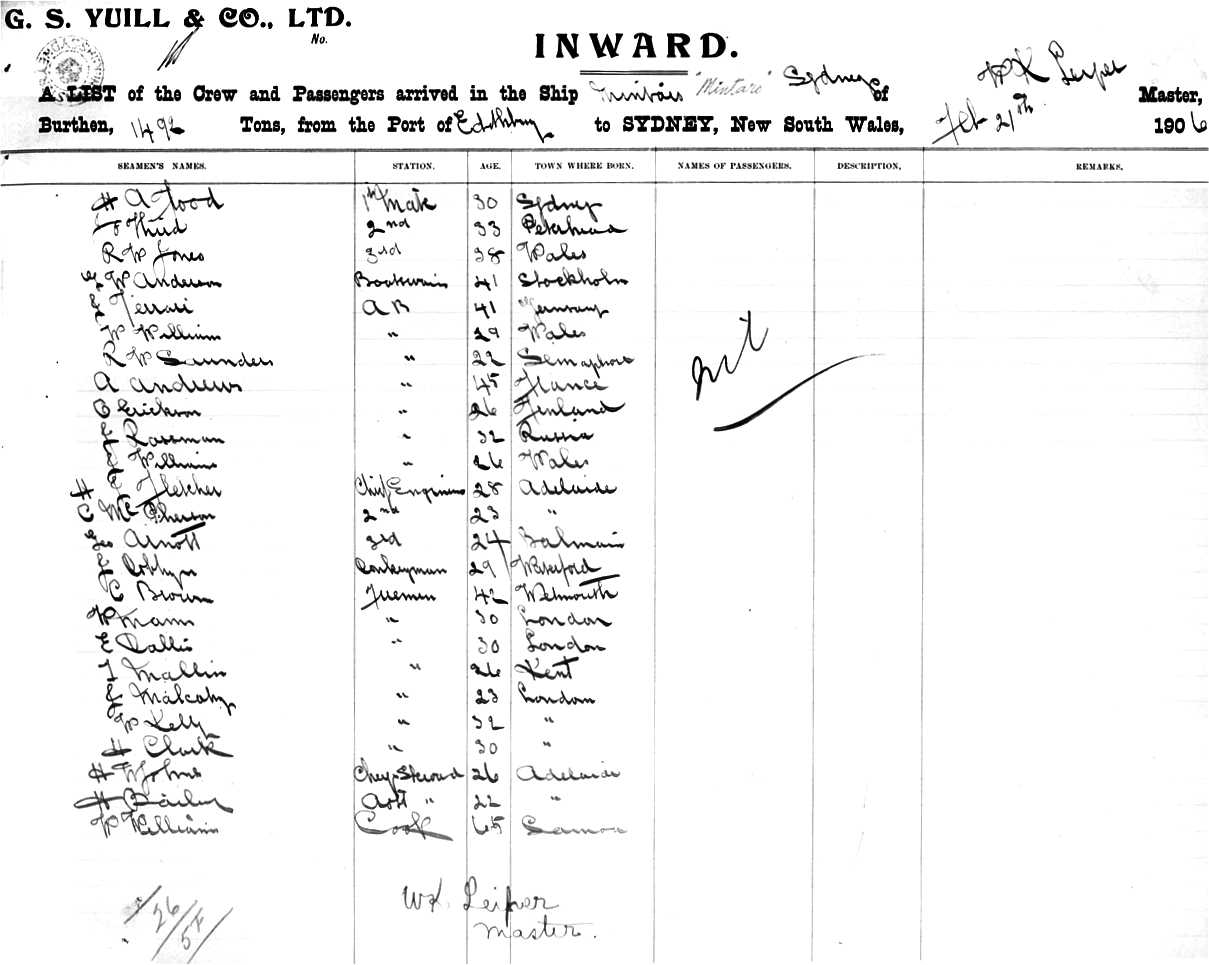 G. S. YUILL & CO., LTD.
No.
INWARD.
A LIST of the Crew and Passengers arrived in the Ship "Mintaro" Sydney of W K Leiper Master,
Burthen, 1496 Tons, from the Port of to SYDNEY, New South Wales, Feb 21th 1906
SEAMEN'S NAMES. STATION. AGE. TOWN WHERE BORN. NAMES OF PASSENGERS. DESCRIPTION, REMARKS.
H A Food 1st Mate 30 Sydney
2nd 33 Peterhead
R W Jones 3rd 38 Wales
W Anderson Boatswain 41 Stockholm
Ferrari AB 41 Germany
W William " 29 Wales
R W Saunders " 22 Semaphore
A Andrews " 45 France
O Erickson " 26 Finland
Rossman " 32 Russia
Williams " 26 Wales
Fletcher Chief Engineer 28 Adelaide
C McPherson 2nd 23 "
Geo Arnott 3rd 24 Balmain
Donkeyman 29 Waterford
C Brown Firemen 42 Weymouth
W Mann " 30 London
E Dallis " 30 London
T Mallin " 26 Kent
Malcahy " 23 London
W Kelly " 32 "
H Clark " 30 "
H W Johns Chief Steward 26 Adelaide
H Bailey Asst " 22 "
W Williams Cook 65 Samoa
nil
W K. Leiper
Master.
26/57